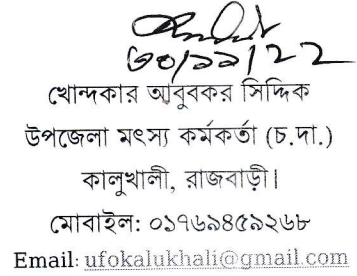 ৩০/১১/২২
খোন্দকার আবুবকর সিদ্দিক
উপজেলা মৎস্য কর্মকর্তা (চ.দা.)
কালুখালী, রাজবাড়ী।
মোবাইল: ০১৭৬৯৪৫৯২৬৮
Email: ufokalukhali@gmail.com